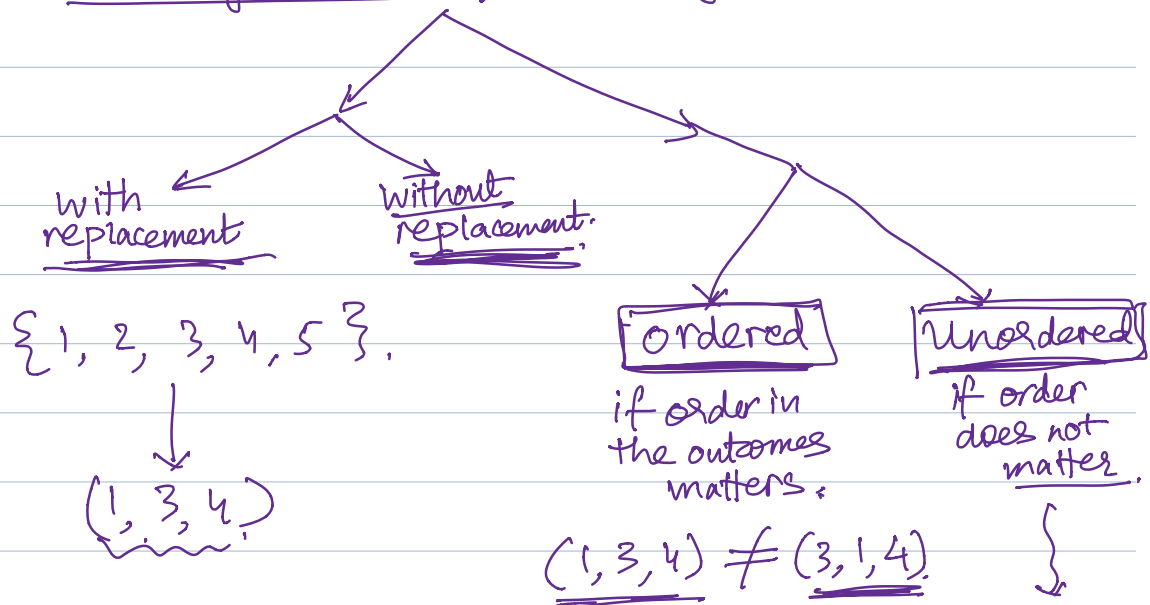 with
replacement
without
replacement.
{1, 2, 3, 4, 5}.
(1, 3, 4)
ordered
if order in
the outcomes
matters.
(1, 3, 4) ≠ (3, 1, 4).
Unordered
if order
does not
matter.